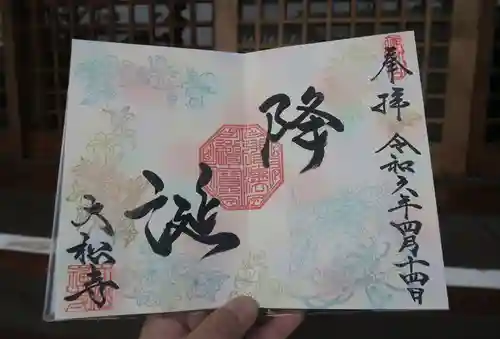 奉拝
令和六年四月十四日
降誕
大松寺